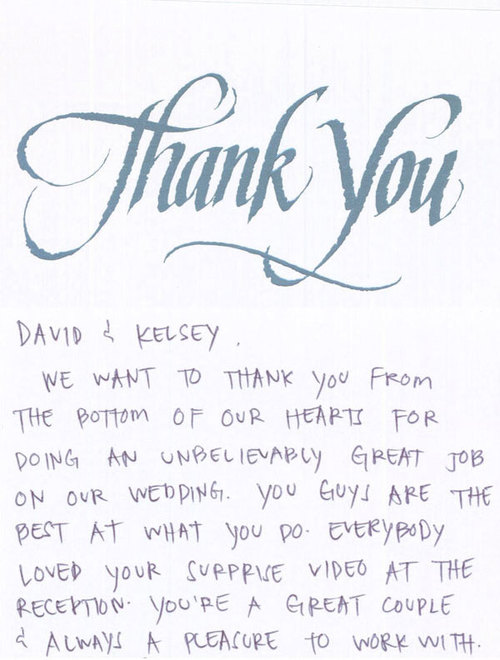 Thank You
DAVID & KELSEY,
WE WANT TO THANK YOU FROM
THE BOTTOM OF OUR HEARTS FOR
DOING AN UNBELIEVABLY GREAT JOB
ON OUR WEDDING. YOU GUYS ARE THE
BEST AT WHAT YOU DO. EVERYBODY
LOVED YOUR SURPRISE VIDEO AT THE
RECEPTION. YOU'RE A GREAT COUPLE
& ALWAYS A PLEASURE TO WORK WITH.